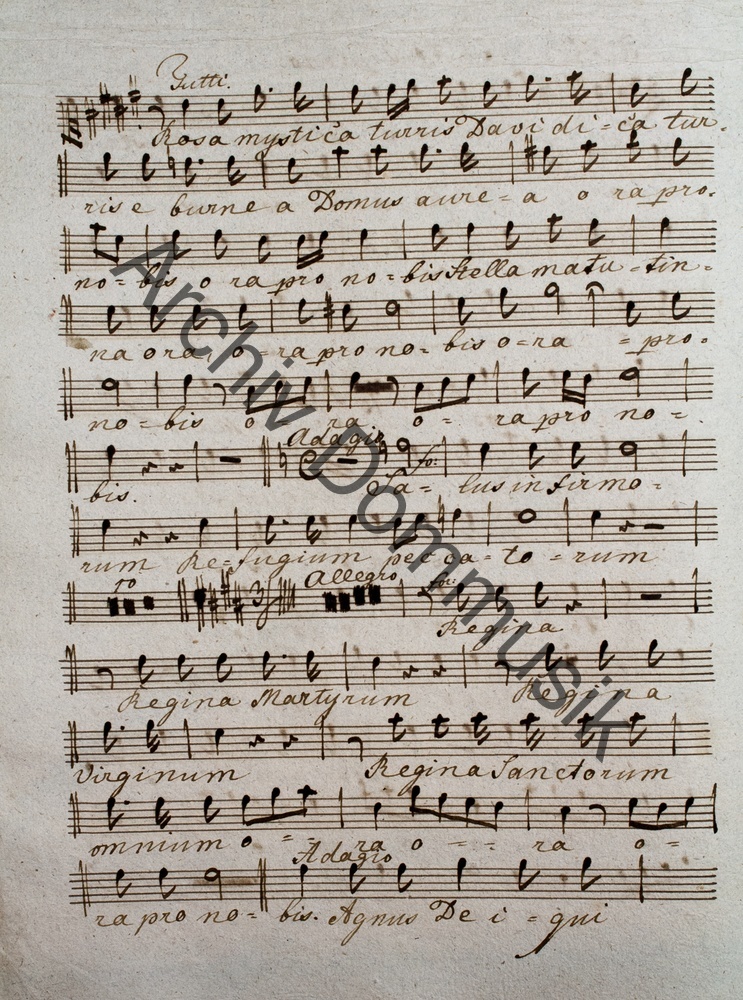 Tutti.
Rosa mystica turris Davidi=ca tur-
ris e burnea Domus aure=a o ra pro-
no=bis o ra pro no=bis Stella matu-tin-
na o ra o-ra pro no=bis o=ra =pro-
no=bis o ra o- ra pro no=
Adagio
fo:
bis. Sa- lus in firmo-
rum Re-fugium pec ca-to-rum
10 Allegro fo:
Regina
Regina Martyrum Regina
Virginum Regina Sanctorum
omnium o = = ra o - - ra o=
Adagio
ra pro no= bis. Agnus De i = qui
Archiv Dommusik